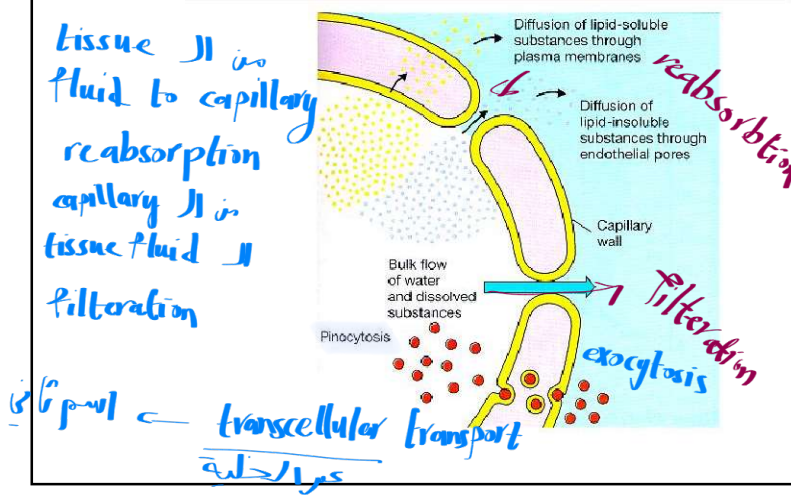 من ال tissue
fluid to capillary
reabsorption
من ال capillary
ال tissue fluid
filteration
transcellular transport
عبر الخلية
Diffusion of lipid-soluble
substances through
plasma membranes
reabsorbtion
Diffusion of
lipid-insoluble
substances through
endothelial pores
Capillary
wall
Bulk flow
of water
and dissolved
substances
filteration
Pinocytosis
exocytosis